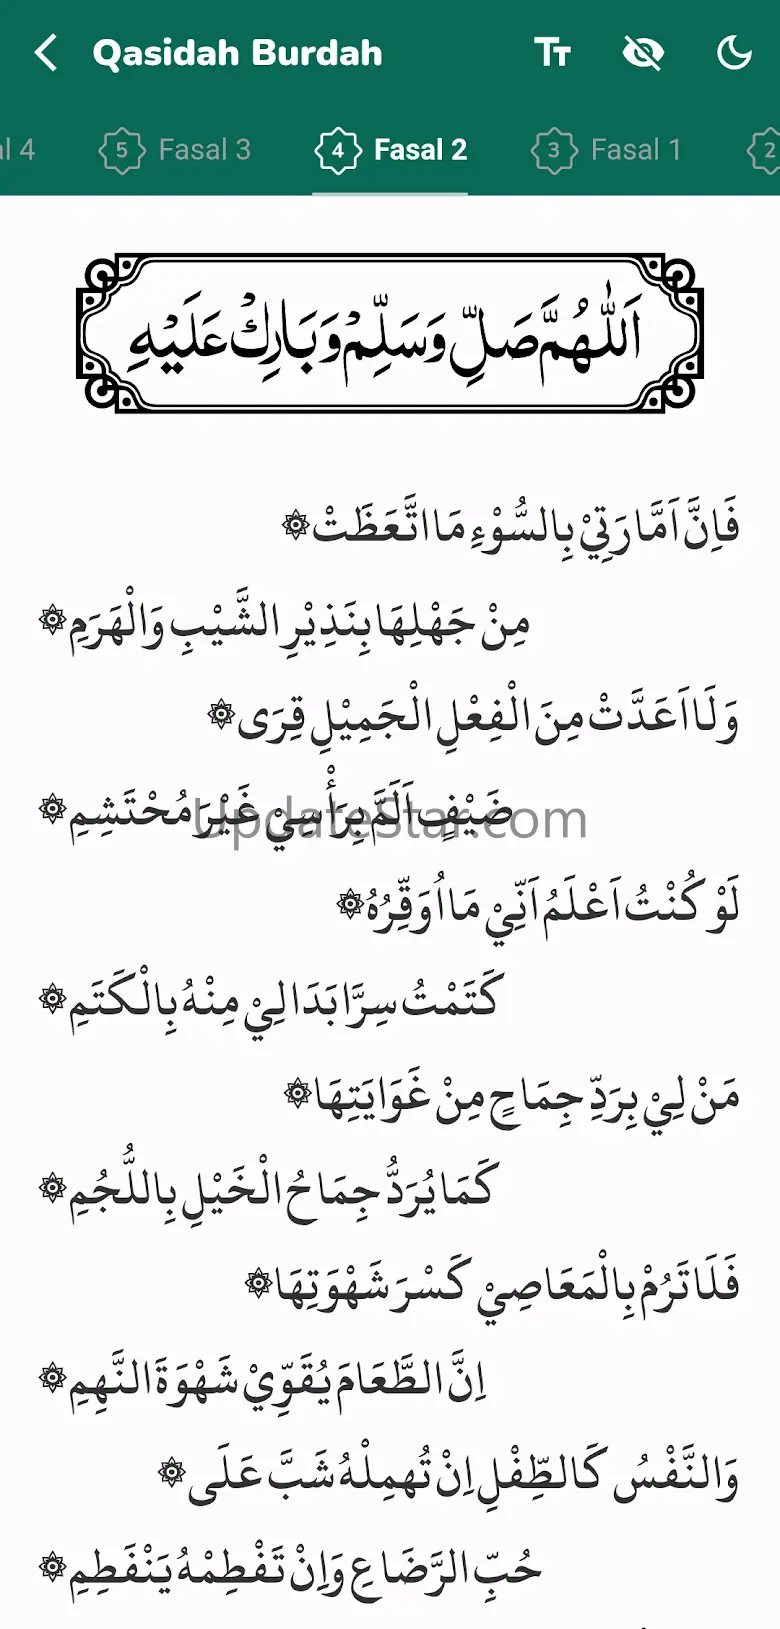 Qasidah Burdah
l 4
5 Fasal 3
4 Fasal 2
3 Fasal 1
2
اَللّٰهُمَّ صَلِّ وَسَلِّمْ وَبَارِكْ عَلَيْهِ
فَاِنَّ اَمَّارَتِيْ بِالسُّوْءِ مَا اتَّعَظَتْ ۞
مِنْ جَهْلِهَا بِنَذِيْرِ الشَّيْبِ وَالْهَرَمِ ۞
وَلَا اَعَدَّتْ مِنَ الْفِعْلِ الْجَمِيْلِ قِرَى ۞
ضَيْفٍ اَلَمَّ بِرَأْسِيْ غَيْرَ مُحْتَشِمِ ۞
UpdateStar.com
لَوْ كُنْتُ اَعْلَمُ اَنِّيْ مَا اُوَقِّرُهُ ۞
كَتَمْتُ سِرًّا بَدَا لِيْ مِنْهُ بِالْكَتَمِ ۞
مَنْ لِيْ بِرَدِّ جِمَاحٍ مِنْ غَوَايَتِهَا ۞
كَمَا يُرَدُّ جِمَاحُ الْخَيْلِ بِاللُّجُمِ ۞
فَلَا تَرُمْ بِالْمَعَاصِيْ كَسْرَ شَهْوَتِهَا ۞
اِنَّ الطَّعَامَ يُقَوِّيْ شَهْوَةَ النَّهِمِ ۞
وَالنَّفْسُ كَالطِّفْلِ اِنْ تُهمِلْهُ شَبَّ عَلَى ۞
حُبِّ الرَّضَاعِ وَاِنْ تَفْطِمْهُ يَنْفَطِمِ ۞